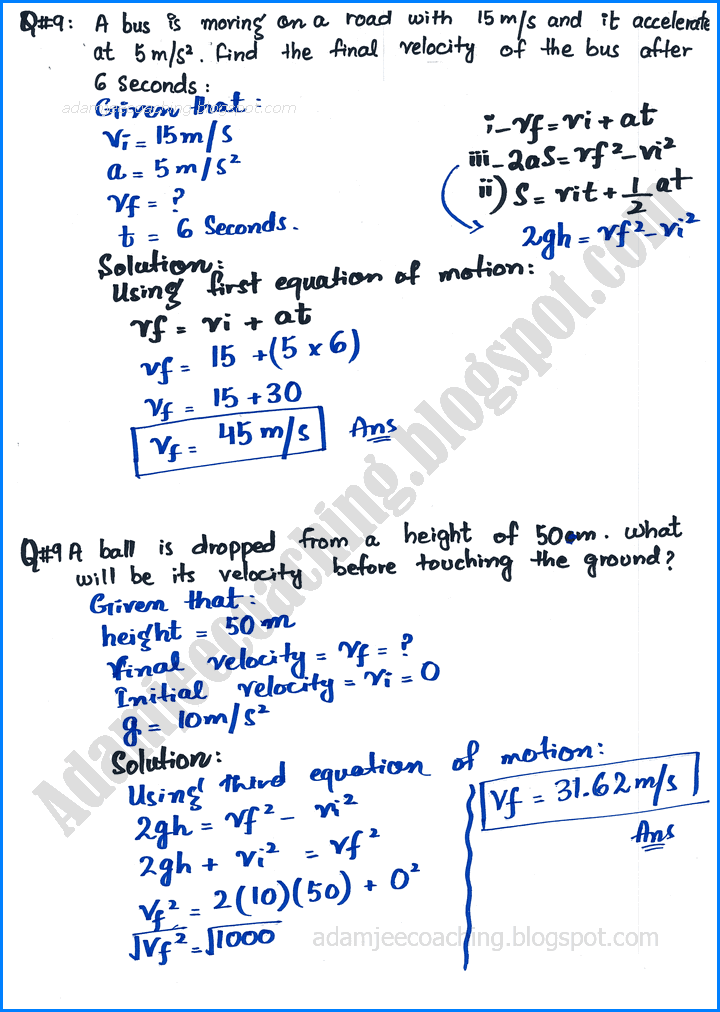 Q#9: A bus is moving on a road with 15 m/s and it accelerate
at 5 m/s². find the final velocity of the bus after
6 seconds:
adamjeecoaching.blogspot.com
Given that:
vi = 15 m/s
a = 5 m/s²
vf = ?
t = 6 Seconds.
i- vf = vi + at
iii- 2aS = vf² - vi²
ii) S = vit + 1/2 at
2gh = vf² - vi²
Solution:
Using first equation of motion:
vf = vi + at
vf = 15 + (5 × 6)
vf = 15 + 30
vf = 45 m/s Ans
Adamjeecoaching.blogspot.com
Q#9 A ball is dropped from a height of 50m. What
will be its velocity before touching the ground?
Given that:
height = 50 m
Final velocity = vf = ?
Initial velocity = vi = 0
g = 10 m/s²
Solution:
Using third equation of motion:
2gh = vf² - vi²
2gh + vi² = vf²
vf² = 2(10)(50) + 0²
√vf² = √1000
vf = 31.62 m/s
Ans
adamjeecoaching.blogspot.com